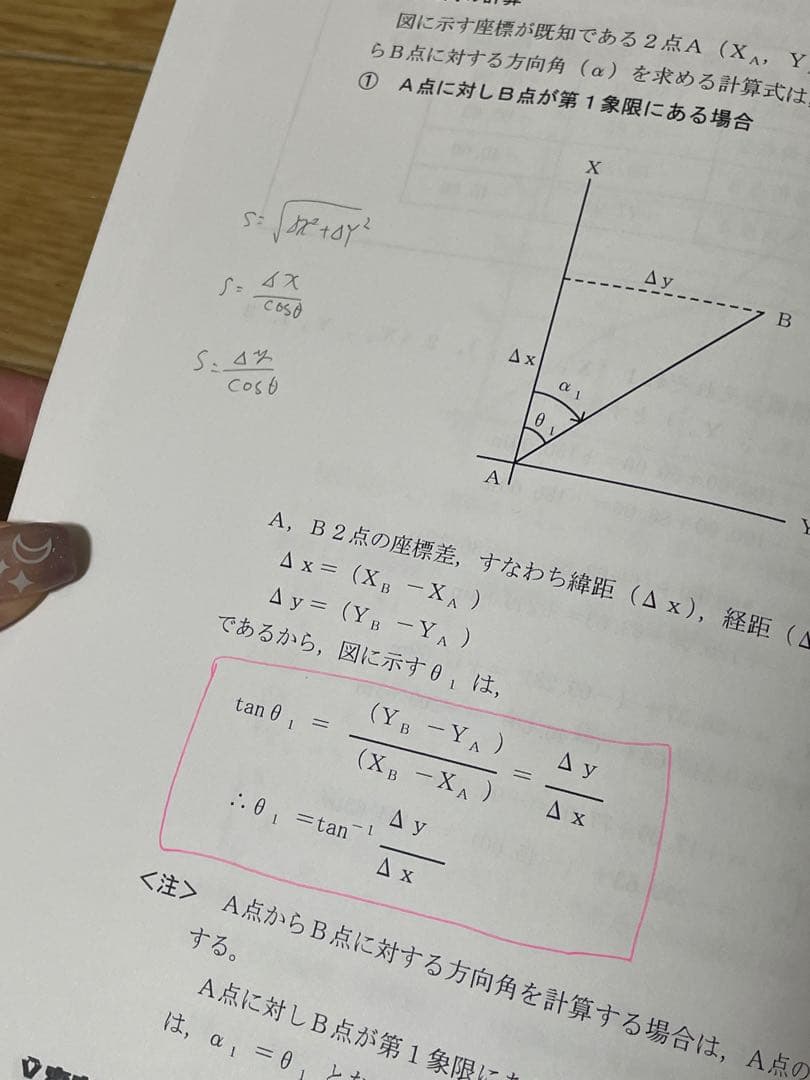 図に示す座標が既知である2点A（X_A, Y
らB点に対する方向角（α）を求める計算式は,
① A点に対しB点が第1象限にある場合
X
S=√ΔX²+ΔY²
Δy
B
S=ΔX/cosθ
Δx
α₁
S=Δy/cosθ
θ₁
A
Y
A, B2点の座標差, すなわち緯距（Δx）, 経距（Δ
Δx＝（X_B －X_A ）
Δy＝（Y_B －Y_A ）
であるから, 図に示すθ₁ は,
tanθ₁ ＝ （Y_B －Y_A ）/（X_B －X_A ） ＝ Δy/Δx
∴θ₁ ＝tan⁻¹ Δy/Δx
<注> A点からB点に対する方向角を計算する場合は, A点の
する。
A点に対しB点が第1象限に
は, α₁ ＝θ₁ とな